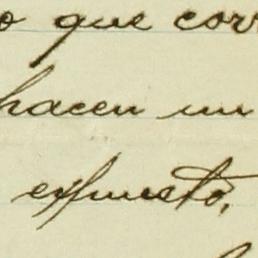 o que cor
hacen un
expuesto,